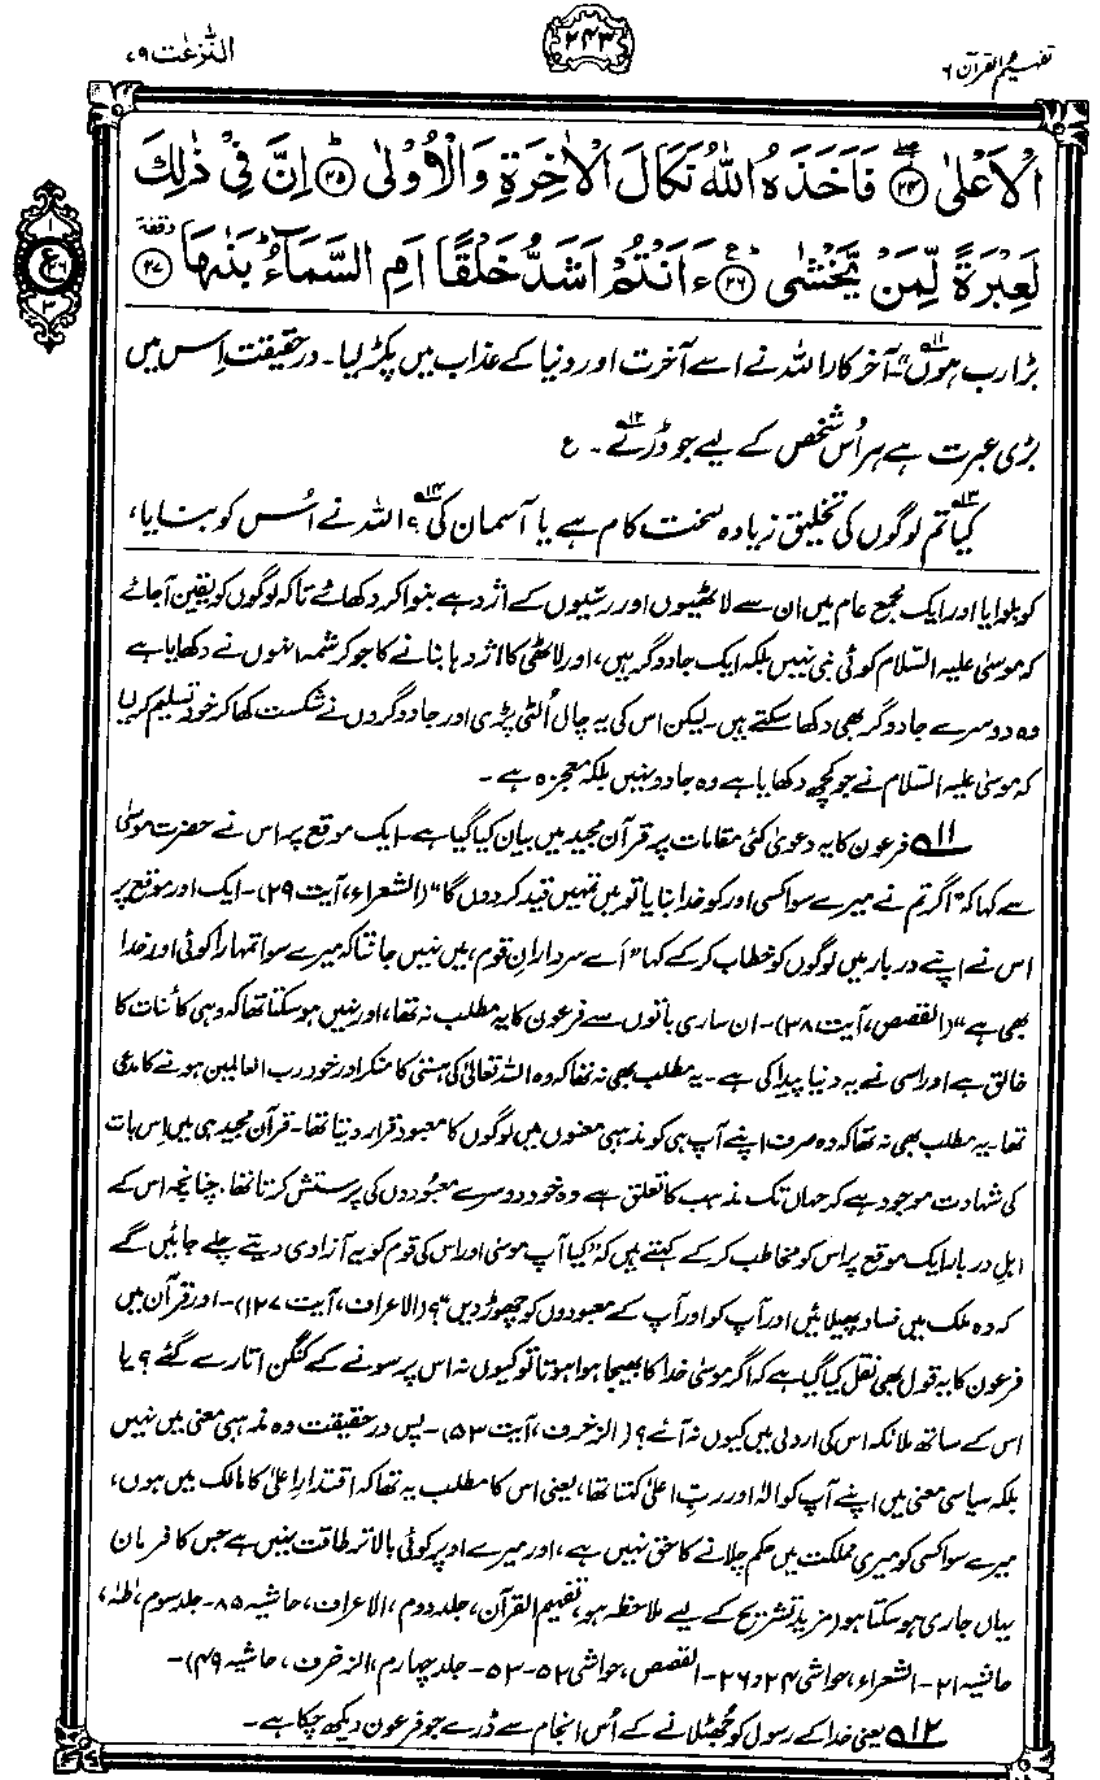 تفہیم القرآن ۶
۲۴۳
النّٰزعٰت ۷۹
الْاَعْلٰی ﴿۲۴﴾ فَاَخَذَهُ اللّٰهُ نَكَالَ الْاٰخِرَةِ وَالْاُوْلٰی ﴿۲۵﴾ اِنَّ فِیْ ذٰلِكَ
لَعِبْرَةً لِّمَنْ یَّخْشٰی ﴿۲۶﴾ ءَاَنْتُمْ اَشَدُّ خَلْقًا اَمِ السَّمَآءُ بَنٰىهَا ﴿۲۷﴾
بڑا رب ہوں"۔۱۱ آخرکار اللہ نے اسے آخرت اور دنیا کے عذاب میں پکڑ لیا۔ درحقیقت اِس میں
بڑی عبرت ہے ہر اُس شخص کے لیے جو ڈرے۱۲۔ ع
کیا۱۳ تم لوگوں کی تخلیق زیادہ سخت کام ہے یا آسمان کی۱۴؟ اللہ نے اُس کو بنایا،
کو بلوایا اور ایک مجمع عام میں ان سے لاٹھیوں اور رسّیوں کے اژدہے بنوا کر دکھائے تاکہ لوگوں کو یقین آجائے
کہ موسیٰ علیہ السّلام کوئی نبی نہیں بلکہ ایک جادوگر ہیں، اور لاٹھی کا اژدہا بنانے کا جو کرشمہ انہوں نے دکھایا ہے
وہ دوسرے جادوگر بھی دکھا سکتے ہیں۔ لیکن اس کی یہ چال اُلٹی پڑی اور جادوگروں نے شکست کھا کر خود تسلیم کر لیا
کہ موسیٰ علیہ السّلام نے جو کچھ دکھایا ہے وہ جادو نہیں بلکہ معجزہ ہے۔
۱۱ فرعون کا یہ دعویٰ کئی مقامات پر قرآن مجید میں بیان کیا گیا ہے۔ ایک موقع پر اس نے حضرت موسیٰ
سے کہا کہ "اگر تم نے میرے سوا کسی اور کو خدا بنایا تو میں تمہیں قید کر دوں گا" (الشعراء، آیت ۲۹)۔ ایک اور موقع پر
اس نے اپنے دربار میں لوگوں کو خطاب کرکے کہا "اَے سردارانِ قوم، میں نہیں جانتا کہ میرے سوا تمہارا کوئی اور خدا
بھی ہے" (القصص، آیت ۳۸)۔ ان ساری باتوں سے فرعون کا یہ مطلب نہ تھا، اور نہیں ہو سکتا تھا کہ وہی کائنات کا
خالق ہے اور اسی نے یہ دنیا پیدا کی ہے۔ یہ مطلب بھی نہ تھا کہ وہ اللہ تعالیٰ کی ہستی کا منکر اور خود رب العالمین ہونے کا مدعی
تھا۔ یہ مطلب بھی نہ تھا کہ وہ صرف اپنے آپ ہی کو مذہبی معنوں میں لوگوں کا معبود قرار دیتا تھا۔ قرآن مجید ہی میں اِس بات
کی شہادت موجود ہے کہ جہاں تک مذہب کا تعلق ہے وہ خود دوسرے معبُودوں کی پرستش کرتا تھا۔ چنانچہ اس کے
اہلِ دربار ایک موقع پر اس کو مخاطب کرکے کہتے ہیں کہ "کیا آپ موسٰی اور اس کی قوم کو یہ آزادی دیتے چلے جائیں گے
کہ وہ ملک میں فساد پھیلائیں اور آپ کو اور آپ کے معبودوں کو چھوڑ دیں"؟ (الاعراف، آیت ۱۲۷)۔ اور قرآن میں
فرعون کا یہ قول بھی نقل کیا گیا ہے کہ اگر موسیٰ خدا کا بھیجا ہوا ہوتا تو کیوں نہ اس پر سونے کے کنگن اتارے گئے؟ یا
اس کے ساتھ ملائکہ اس کی اردلی میں کیوں نہ آئے؟ (الزخرف، آیت ۵۳)۔ پس درحقیقت وہ مذہبی معنی میں نہیں
بلکہ سیاسی معنی میں اپنے آپ کو الٰہ اور ربِّ اعلیٰ کہتا تھا، یعنی اس کا مطلب یہ تھا کہ اقتدارِ اعلیٰ کا مالک میں ہوں،
میرے سوا کسی کو میری مملکت میں حکم چلانے کا حق نہیں ہے، اور میرے اوپر کوئی بالاتر طاقت نہیں ہے جس کا فرمان
یہاں جاری ہو سکتا ہو (مزید تشریح کے لیے ملاحظہ ہو، تفہیم القرآن، جلد دوم، الاعراف، حاشیہ ۸۵۔ جلد سوم، طٰہٰ،
حاشیہ ۲۱۔ الشعراء، حواشی ۲۴ و ۲۶۔ القصص، حواشی ۵۲۔۵۳۔ جلد چہارم، الزخرف، حاشیہ ۴۹)۔
۱۲ یعنی خدا کے رسول کو جُھٹلانے کے اُس انجام سے ڈرے جو فرعون دیکھ چکا ہے۔